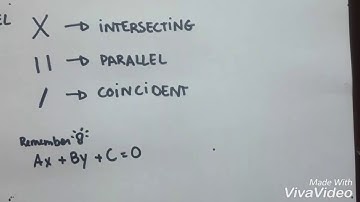 EL
X → INTERSECTING
|| → PARALLEL
/ → COINCIDENT
Remember
Ax + By + C = 0
Made With
VivaVideo